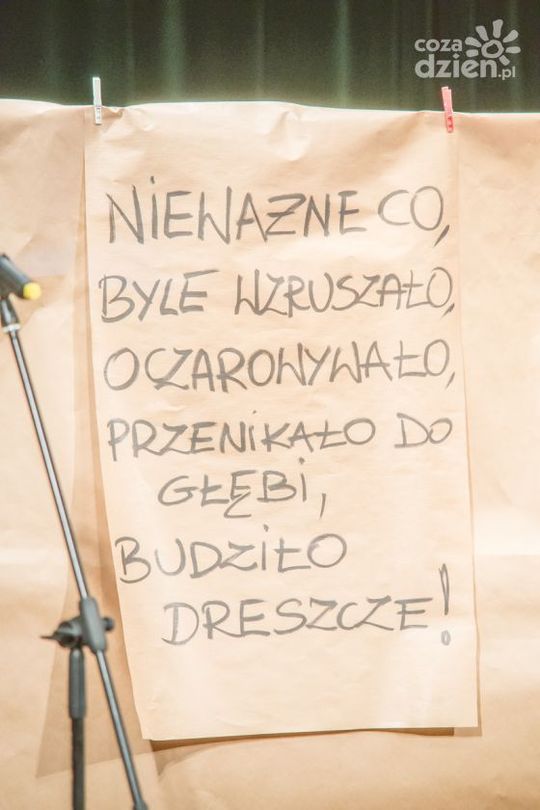 coza
dzień.pl
NIEWAŻNE CO,
BYLE WZRUSZAŁO,
OCZAROWYWAŁO,
PRZENIKAŁO DO
GŁĘBI,
BUDZIŁO
DRESZCZE!